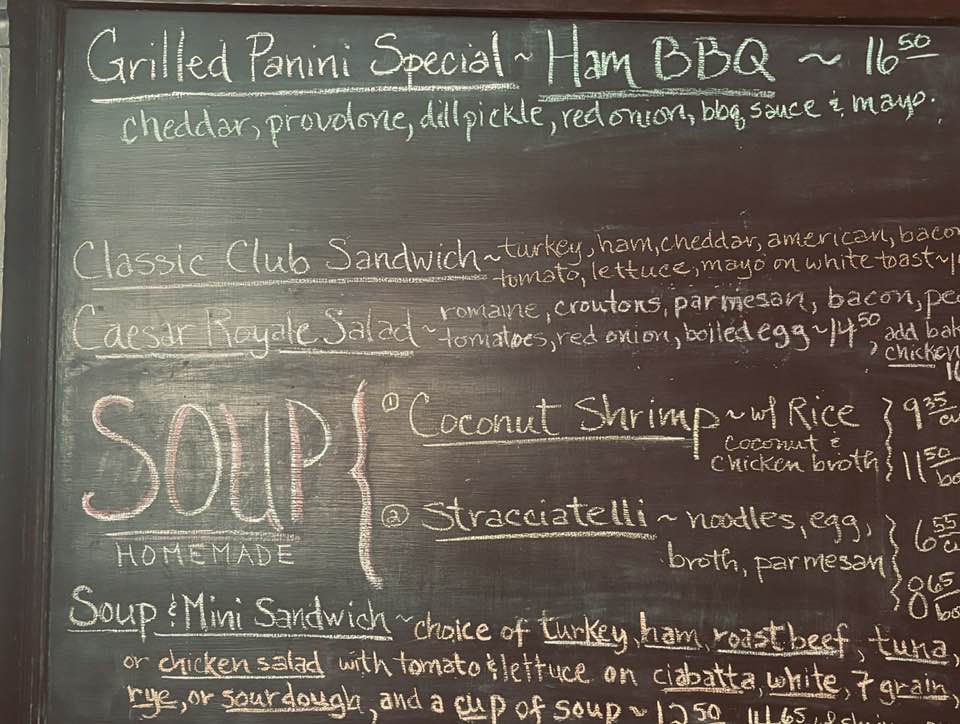 Grilled Panini Special ~ Ham BBQ ~ 16 50
cheddar, provolone, dill pickle, red onion, bbq sauce & mayo.
Classic Club Sandwich ~ turkey, ham, cheddar, american, baco
tomato, lettuce, mayo on white toast ~
Caesar Royale Salad ~ romaine, croutons, parmesan, bacon,
tomatoes, red onion, boiled egg ~ 14 50, add
chicken
SOUP
HOMEMADE
① Coconut Shrimp ~ w/ Rice } 9 35
coconut &
chicken broth } 11 50
② Stracciatelli ~ noodles, egg, } 6 55
broth, parmesan } 8 65
Soup & Mini Sandwich ~ choice of turkey, ham, roast beef, tuna,
or chicken salad with tomato & lettuce on ciabatta, white, 7 grain,
rye, or sourdough, and a cup of soup ~ 12 50